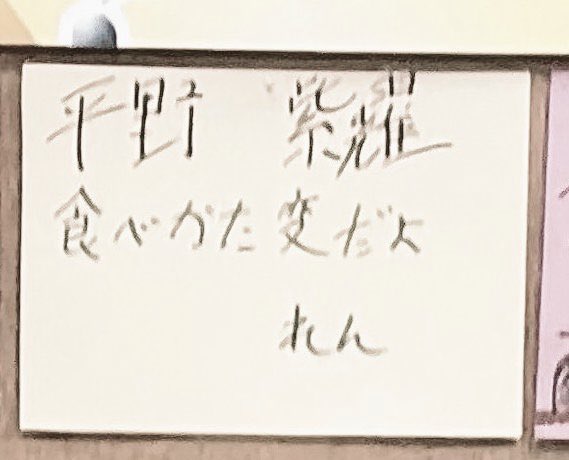 平野 紫耀
食べかた変だよ
れん